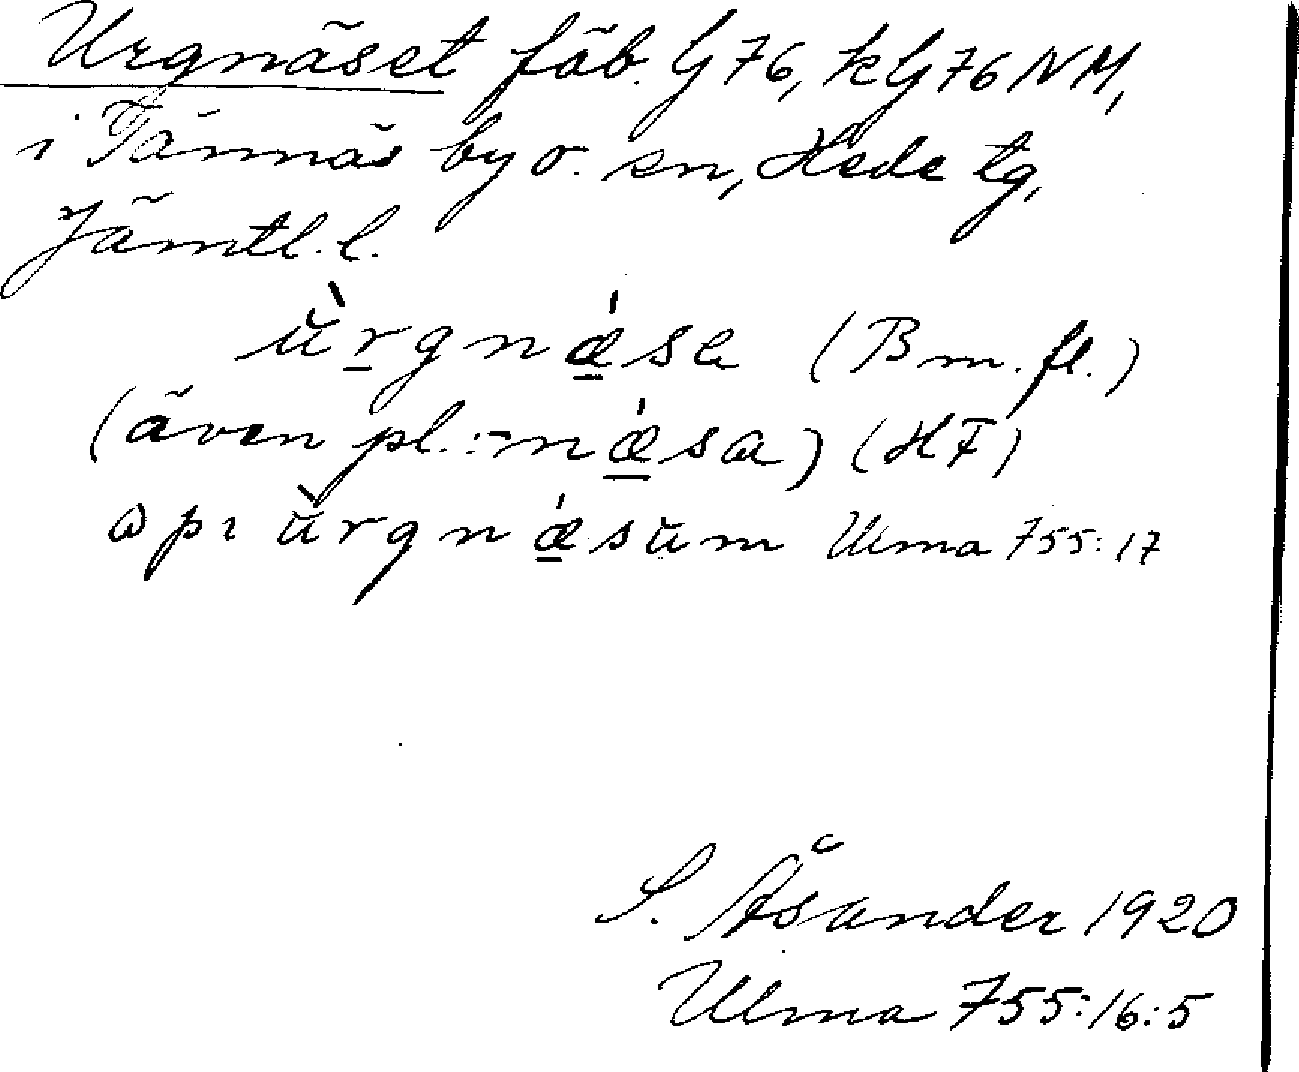 Urgnäset fäb. G 76, k G 76 NM,
i Tännäs by o. sn, Hede tg,
Jämtl. l.
ùrgnǽsa (B m. fl.)
(även pl.: -nǽsa) (HF)
a pɩ ùrgnǽsum Ulma 755:17
S. Åsander 1920
Ulma 755:16:5